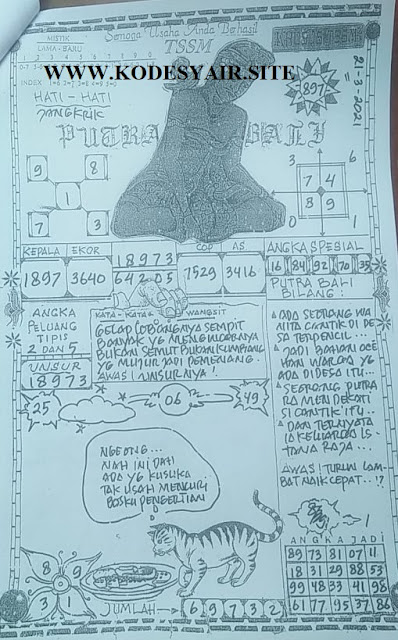 MISTIK
LAMA - BARU
Semoga Usaha Anda Berhasil
TSSM
WWW.KODESYAIR.SITE
INDEX
HATI - HATI
JANGKRIK
897
21-3-2021
PUTRA BALI
9 8
1
7 3
3 6
7 4
8 9
0 1
KEPALA EKOR
1897 3640
18973
64205
COP AS
7529 3416
ANGKA SPESIAL
16 84 92 70 35
PUTRA BALI
BILANG :
ANGKA
PELUANG
TIPIS
2 DAN 5
UNSUR
18973
KATA - KATA WANGSIT
GELAP LOBANGNYA SEMPIT
BANYAK YG MENGINCARNYA
BUKAN SEMUT BUKAN KUMBANG
YG MUJUR JADI PEMENANG.
AWAS ! UNSURNYA !.
ADA SEORANG WA
NITA CANTIK DI DE
SA TERPENCIL.
JADI BAHAN OCE
HAN WARGA YG
ADA DI DESA ITU...
SEORANG PUTRA
RAMEN DEKATI
SI CANTIK ITU..
DAN TERNYATA
IA KELUARGA IS-
TANA RAJA ...
AWAS ! TURUN LAM-
BAT NAIK CEPAT ..!?
25
06
49
NGEONG...
NAH INI DATI
ADA YG KUSUKA
TAK USAH MENCURI
BOSKU PENGERTIAN
8 9
3 1
JUMLAH
6 9 7 3 2
ANGKA JADI
89 73 81 07 11
18 31 29 88 53
99 48 33 41 98
61 77 95 37 86